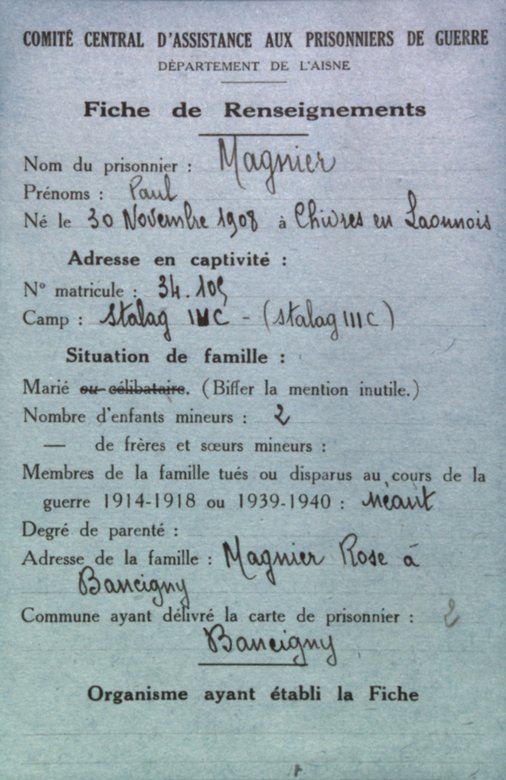 COMITÉ CENTRAL D'ASSISTANCE AUX PRISONNIERS DE GUERRE
DÉPARTEMENT DE L'AISNE
Fiche de Renseignements
Nom du prisonnier : Magnier
Prénoms : Paul
Né le 30 Novembre 1908 à Chivres en Laonnois
Adresse en captivité :
N° matricule : 34.105
Camp : Stalag IIIC - (stalag III C)
Situation de famille :
Marié ou célibataire. (Biffer la mention inutile.)
Nombre d'enfants mineurs : 2
— de frères et sœurs mineurs :
Membres de la famille tués ou disparus au cours de la
guerre 1914-1918 ou 1939-1940 : néant
Degré de parenté :
Adresse de la famille : Magnier Rose à
Bancigny
Commune ayant délivré la carte de prisonnier : 2
Bancigny
Organisme ayant établi la Fiche